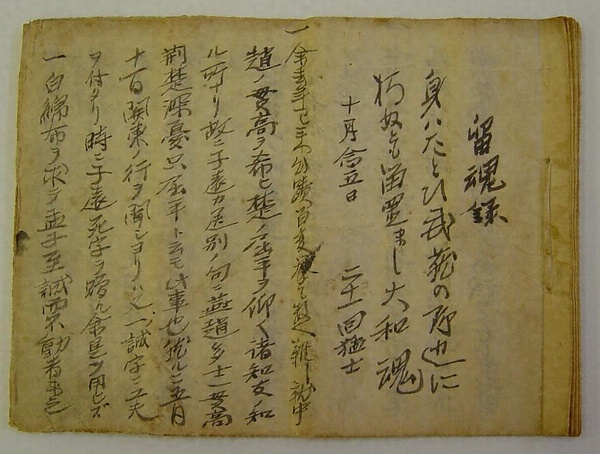 留魂録
身ハたとひ武蔵の野辺に
朽ぬとも留置まし大和魂
十月念五日　二十一回猛士
一余去年已来心蹟百変挙て数へ難し就中
趙ノ貫高ヲ希ヒ楚ノ屈平ヲ仰ク諸知友ノ知
ル所ナリ故ニ子遠カ送別ノ句ニ燕趙多士一貫高
荊楚深憂只屈平ト云モ此事也然ルニ五月
十一日関東ノ行ヲ聞シヨリハ又一ノ誠字ニ工夫
ヲ付タリ時ニ子遠死字ヲ贈ル余是ヲ用ヒズ
一白綿布ヲ求テ孟子至誠而不動者未之